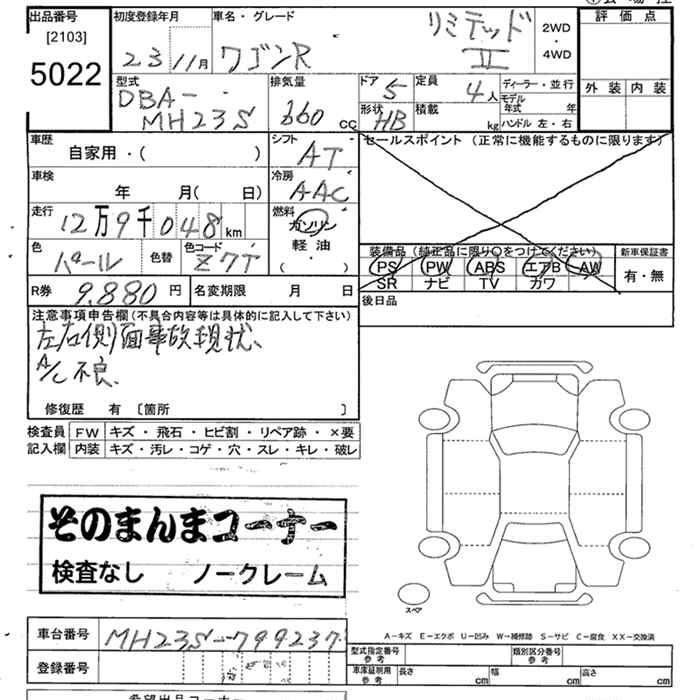 出品番号
[2103]
5022
初度登録年月
23 11月
車名・グレード
ワゴンR
リミテッド
II
2WD
・
4WD
評価点
外装 内装
型式
DBA-
MH23S
排気量
660 cc
ドア 5
定員 4人
形状 HB
積載 kg
ディーラー・並行
モデル年式 年
ハンドル 左・右
車歴
自家用・( )
シフト
AT
セールスポイント (正常に機能するものに限ります)
車検
年 月( 日)
冷房
AAC
走行
12万9千048km
燃料
ガソリン
軽油
( ・ )
色
パール
色替
色コード
Z7T
装備品 (純正品に限り〇をつけてください)
PS PW ABS エアB AW
SR ナビ TV カワ
新車保証書
有・無
R券 9.880 円
名変期限 月 日
後日品
注意事項申告欄(不具合内容等は具体的に記入して下さい)
左右側面事故現状、
A/C不良、
修復歴 有 〔箇所 〕
検査員
記入欄
FW キズ・飛石・ヒビ割・リペア跡・×要
内装 キズ・汚レ・コゲ・穴・スレ・キレ・破レ
そのまんまコーナー
検査なし ノークレーム
スペア
A-キズ E-エクボ U-凹み W-補修跡 S-サビ C-腐食 XX-交換済
車台番号 MH23S-799237
登録番号
型式指定番号
参考
類別区分番号
参考
車庫証明用
参考
長さ cm
幅 cm
高さ cm
希望出品コーナー